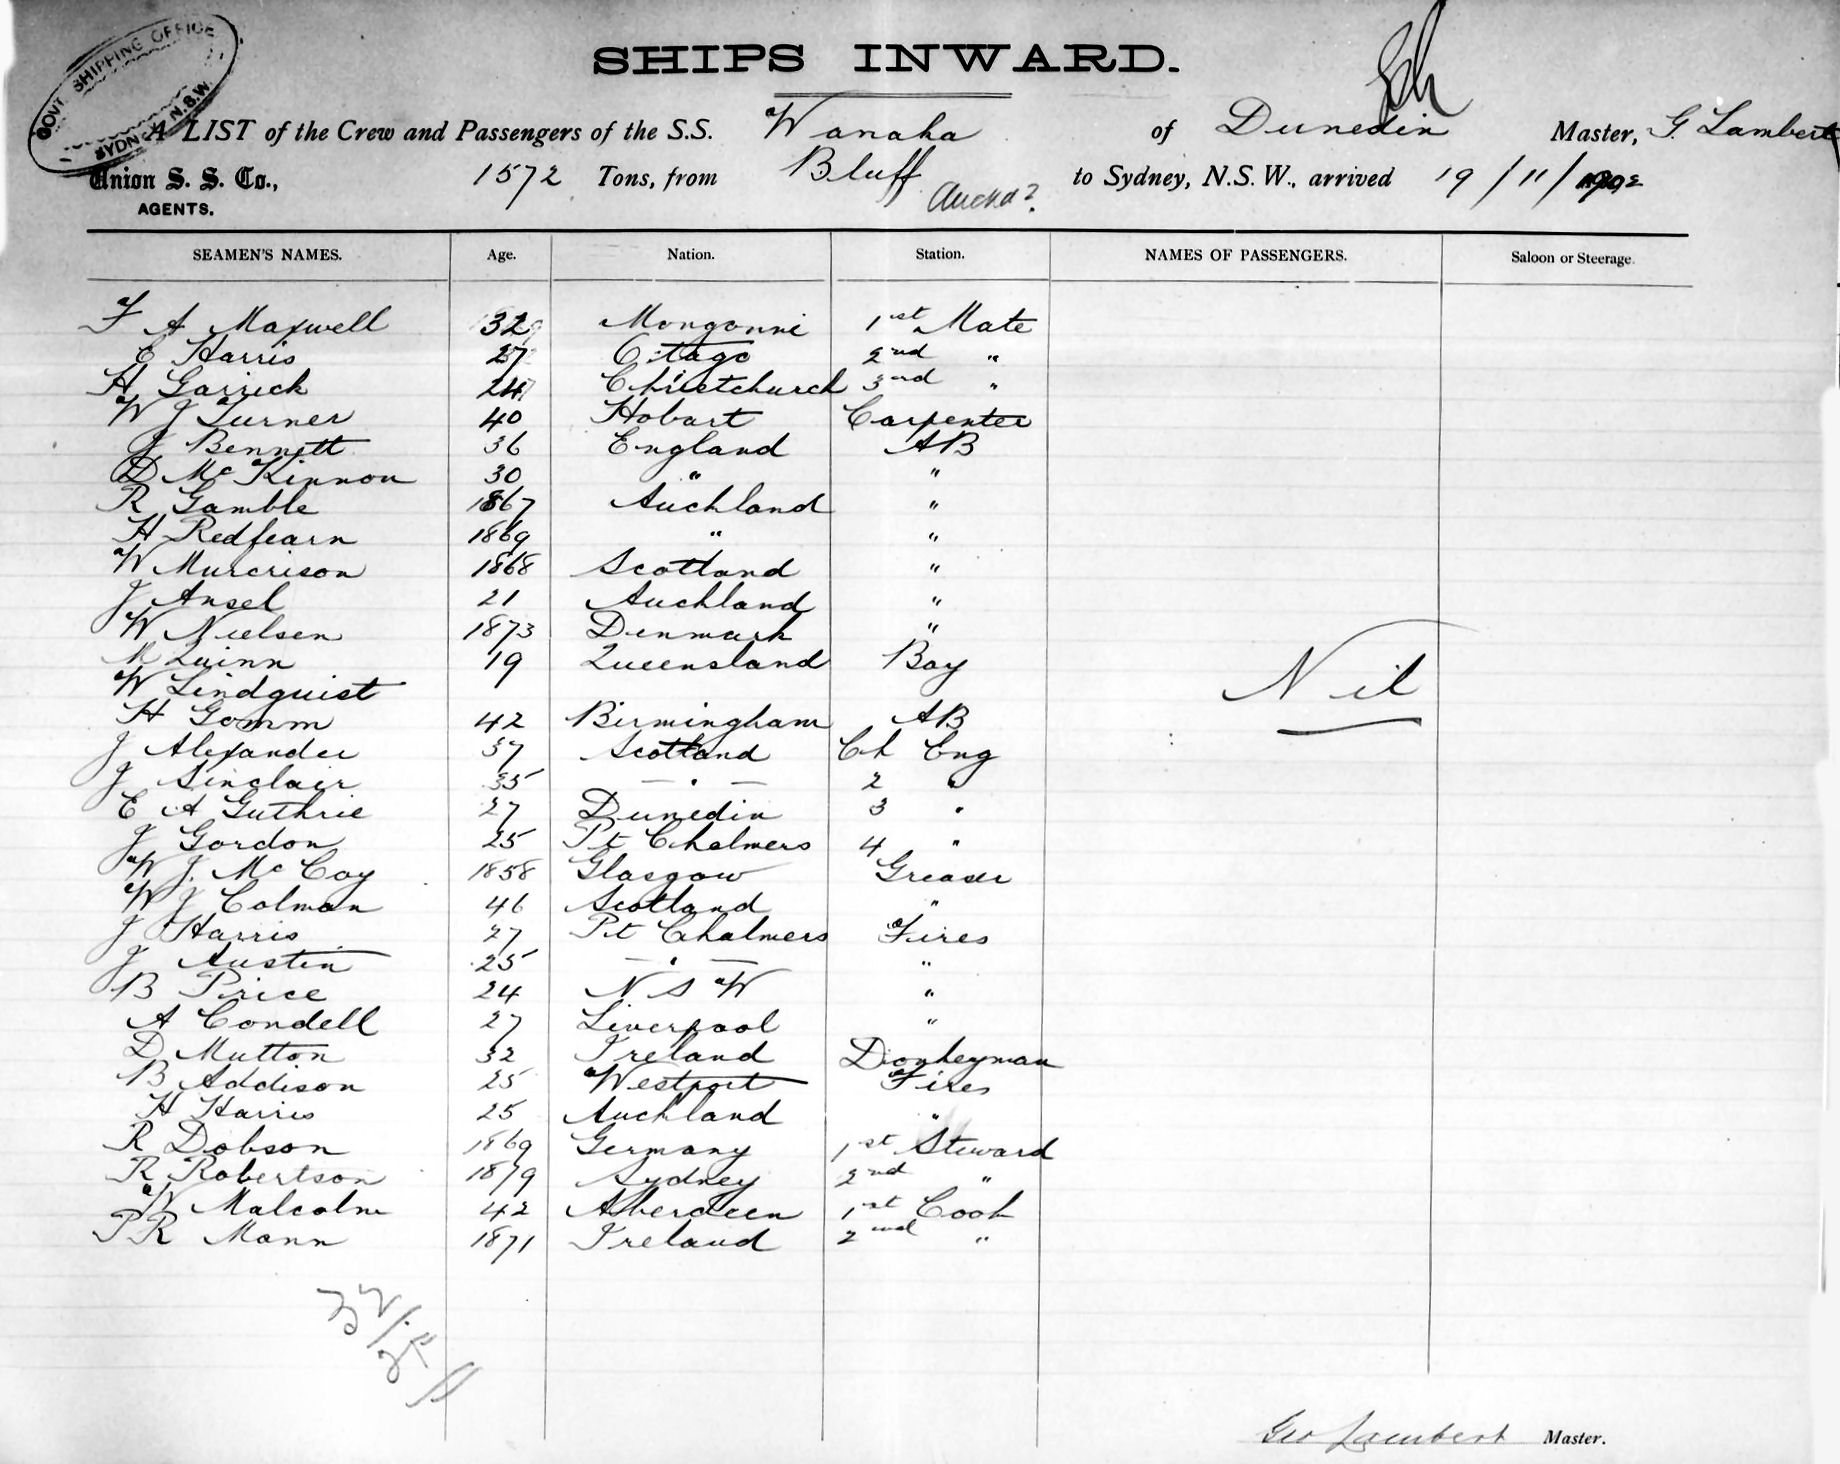 GOVT SHIPPING OFFICE
SYDNEY N.S.W.
SHIPS INWARD.
A LIST of the Crew and Passengers of the S.S. Wanaka of Dunedin Master, G. Lambert
Union S. S. Co., 1572 Tons, from Bluff to Sydney, N.S.W., arrived 19/11/1902
AGENTS.
SEAMEN'S NAMES. Age. Nation. Station. NAMES OF PASSENGERS. Saloon or Steerage.
F A Maxwell 32 Mongonni 1st Mate
E Harris 27 Otago 2nd "
H Garrick 24 Christchurch 3rd "
W J Turner 40 Hobart Carpenter
J Bennett 36 England AB
D McKinnon 30 " "
R Gamble 1867 Auckland "
H Redfearn 1869 " "
W Murcrison 1868 Scotland "
J Ansel 21 Auckland "
W Nielsen 1873 Denmark "
M Quinn 19 Queensland Boy
W Lindquist
Nil
H Gomm 42 Birmingham AB
J Alexander 37 Scotland Ch Eng
J Sinclair 35 — " — 2 "
E A Guthrie 27 Dunedin 3 "
J Gordon 25 Pt Chalmers 4 "
W J. McCoy 1858 Glasgow Greaser
W J Colman 46 Scotland "
J Harris 27 Pt Chalmers Fires
J Austin 25 — " — "
B Price 24 N S W "
A Condell 27 Liverpool "
D Mutton 32 Ireland Donkeyman
B Addison 25 Westport Fires
H Harris 25 Auckland "
R Dobson 1869 Germany 1st Steward
R Robertson 1879 Sydney 2nd "
W Malcolm 42 Aberdeen 1st Cook
P R Mann 1871 Ireland 2nd "
32/
Geo Lambert Master.